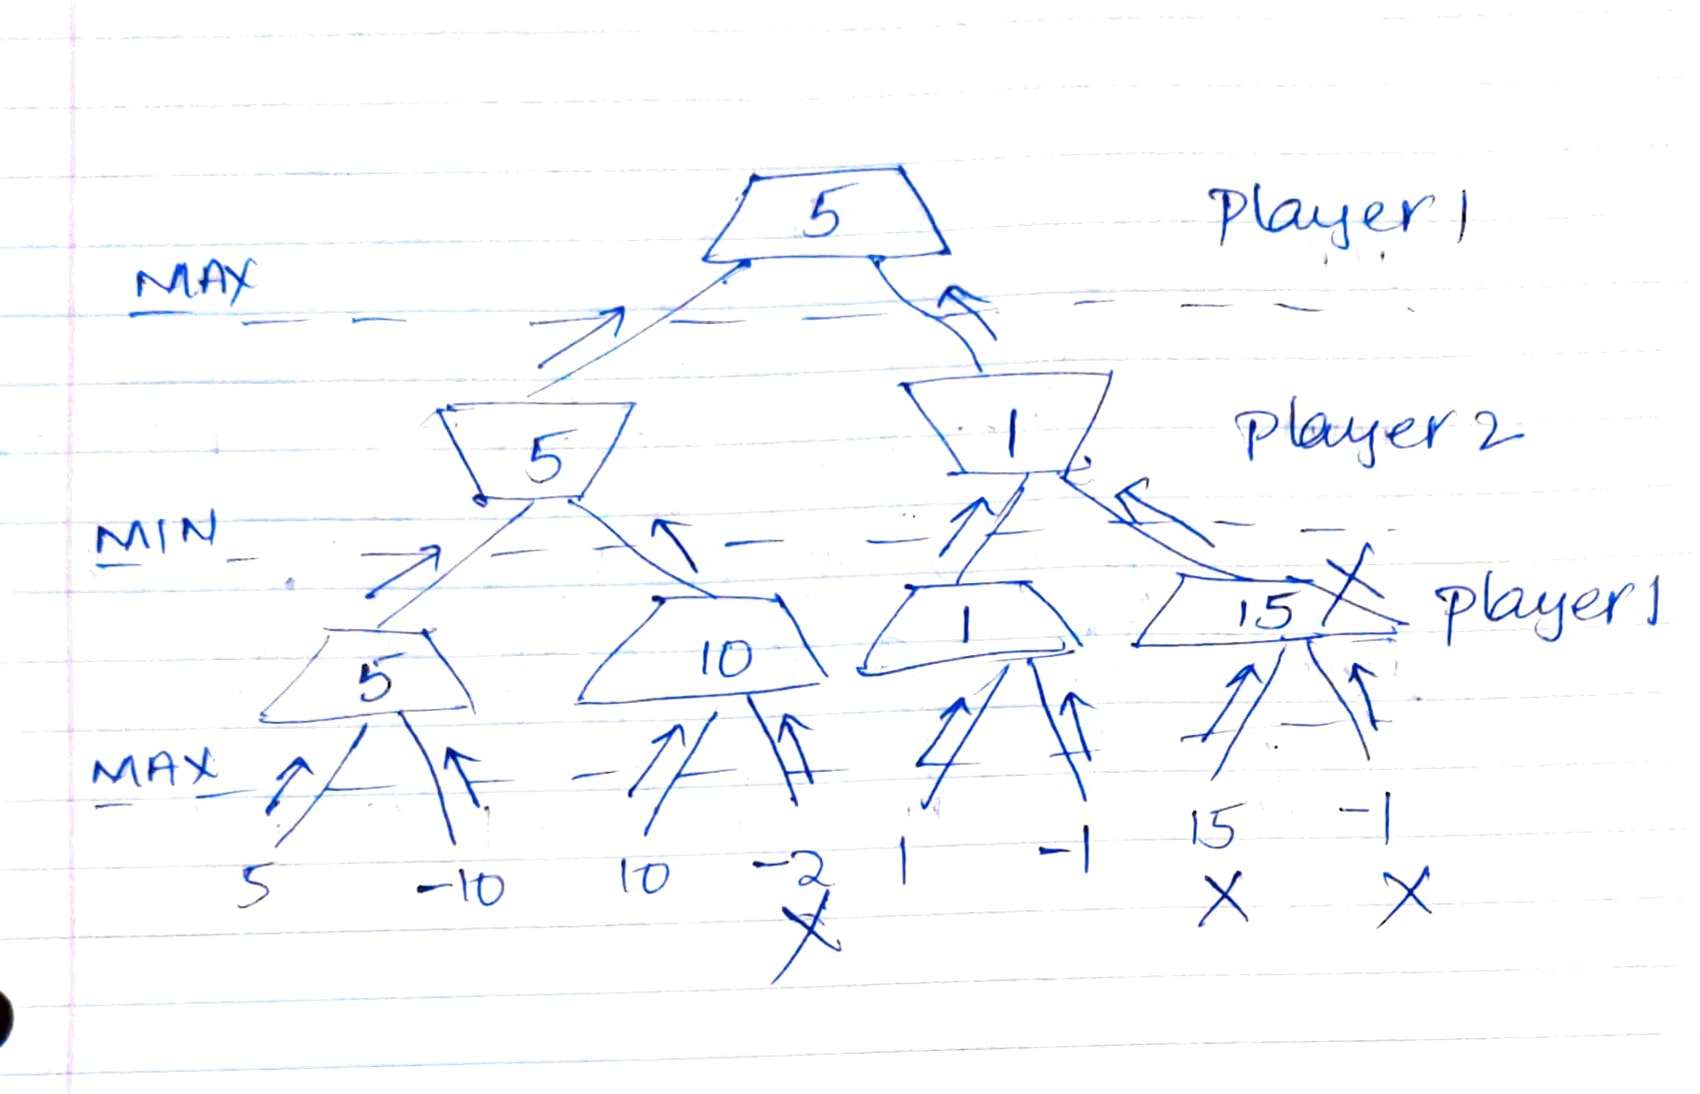 5 Player 1
MAX
5 1 Player 2
MIN
5 10 1 15 X Player 1
MAX
5 -10 10 -2 1 -1 15 -1
X X X